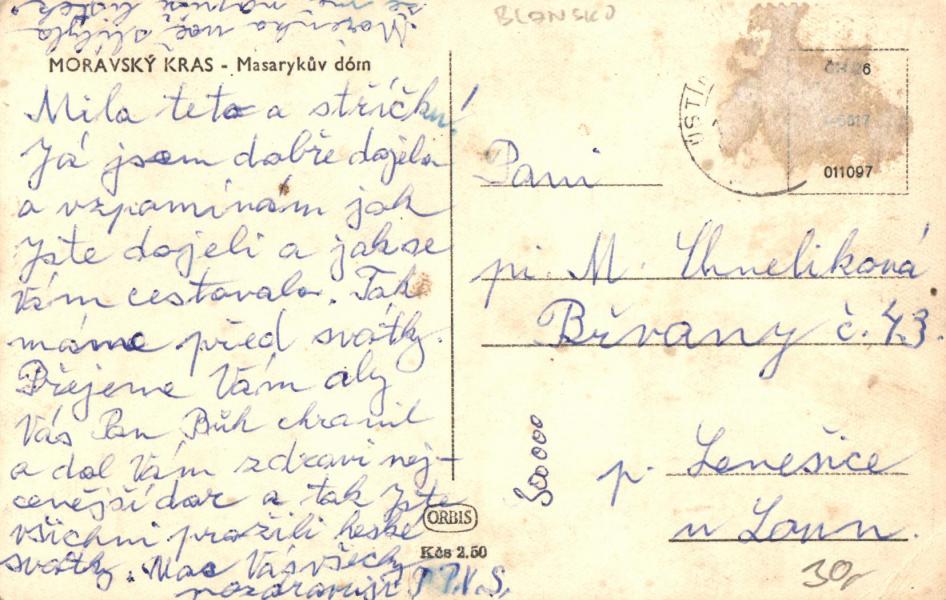 BLANSKO
MORAVSKÝ KRAS - Masarykův dóm
Milá teto a stříčku!
Já jsem dobře dojela
a vzpamínám jak
Jste dojeli a jak se
Vám cestovalo. Tak
máme před svátky.
Přejeme Vám aby
Vás Pan Bůh chranil
a dal Vám zdraví nej-
cenější dar a tak Jste
všichni prožili heské
svátky. Nas Vás všechy
pozdravuji
P.V.S.
ORBIS
Kčs 2.50
ÚSTÍ
6
011097
Paní
pí. M.
Břvany č. 43.
p. Lenešice
u Loun.
300000
30,